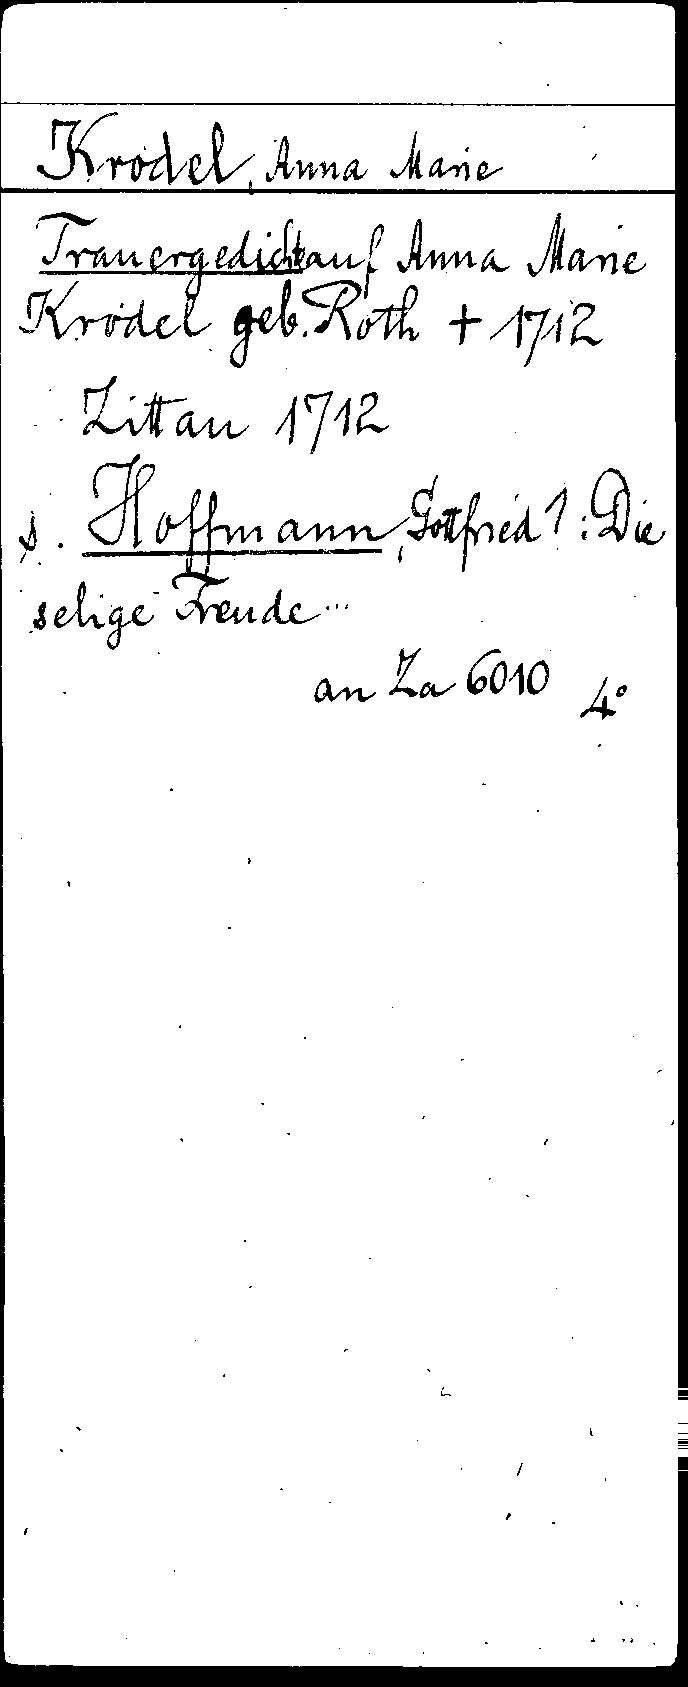 Krödel, Anna Marie
Trauergedicht auf Anna Marie
Krödel geb. Roth + 1712
Zittau 1712
s. Hoffmann, Gottfried 1: Die
selige Freude...
an Za 6010 4°